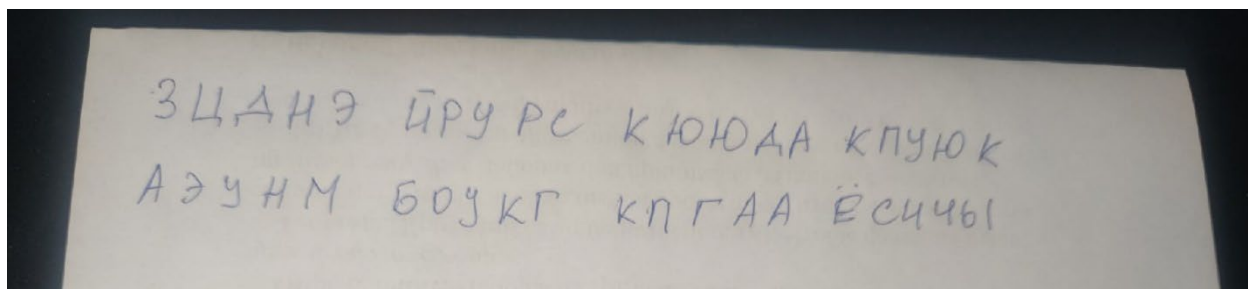 ЗЦДНЭ ЙРУРС КЮЮДА КПУЮК
АЭУНМ БОУКГ КПГАА ЁСИЧЫ